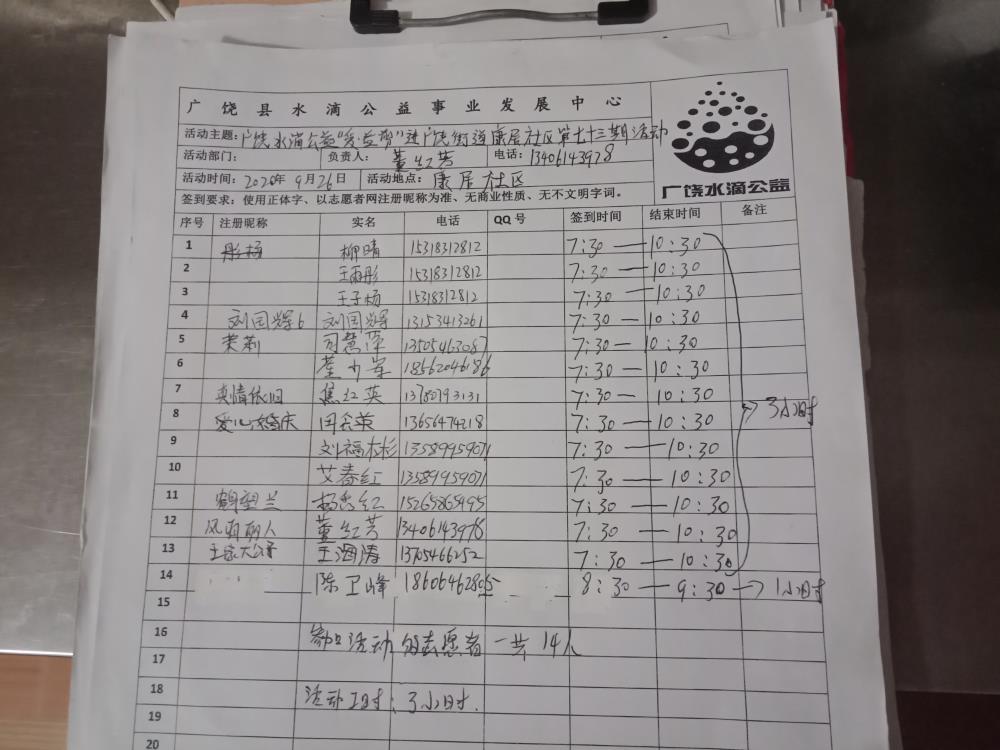 广饶县水滴公益事业发展中心
活动主题:广饶水滴公益"爱益剪"进广饶街道康居社区第七十三期活动
活动部门: 负责人:董红芳 电话:13406143978
活动时间:2020年9月26日 活动地点:康居社区
签到要求:使用正体字、以志愿者网注册昵称为准、无商业性质、无不文明字词。
广饶水滴公益
序号 注册昵称 实名 电话 QQ号 签到时间 结束时间 备注
1 彤杨 柳晴 15318312812 7:30 — 10:30
2 王雨彤 15318312812 7:30 — 10:30
3 王子杨 15318312812 7:30 — 10:30
4 刘国辉6 刘国辉 13153413261 7:30 — 10:30
5 茉莉 司慧萍 13505463087 7:30 — 10:30
6 董少军 18562046186 7:30 — 10:30
7 真情依旧 焦红英 13780793131 7:30 — 10:30
8 爱心婚庆 田会英 13656474218 7:30 — 10:30 → 3小时
9 刘福杉 13589959071 7:30 — 10:30
10 艾春红 13589959071 7:30 — 10:30
11 鹤望兰 杨秀红 15265865995 7:30 — 10:30
12 风雨丽人 董红芳 13406143978 7:30 — 10:30
13 王 13705466252 7:30 — 10:30
14 陈卫峰 18606462805 8:30 — 9:30 → 1小时
15
16 参加活动的志愿者一共14人
17
18 活动工时:3小时.
19
20